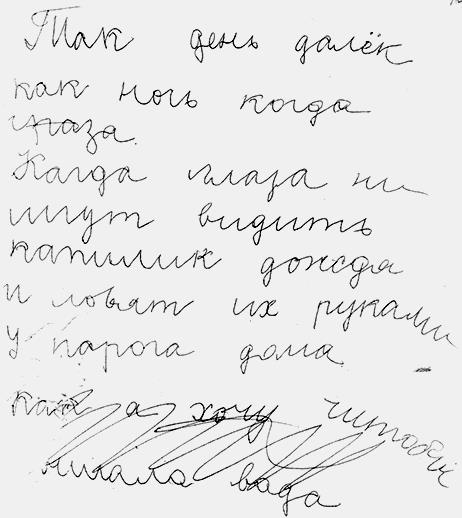 Так день далёк
как ночь когда
глаза.
Кагда глаза ни
могут видить
капилик дождя
и ловят их руками
у парога дома
как я хочу читобы
вада